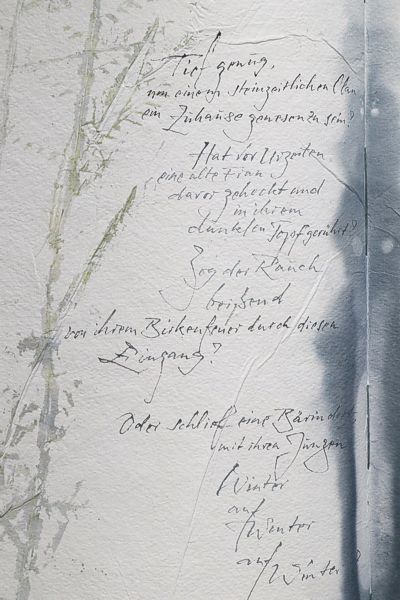 Tief genug,
um einem steinzeitlichen Clan
ein Zuhause gewesen zu sein?
Hat vor Urzeiten
eine alte Frau
davor gehockt und
in ihrem
dunklen Topf gerührt?
Zog der Rauch
beißend
von ihrem Birkenfeuer durch diesen
Eingang?
Oder schlief eine Bärin dort,
mit ihren Jungen
Winter
auf Winter
auf Winter?